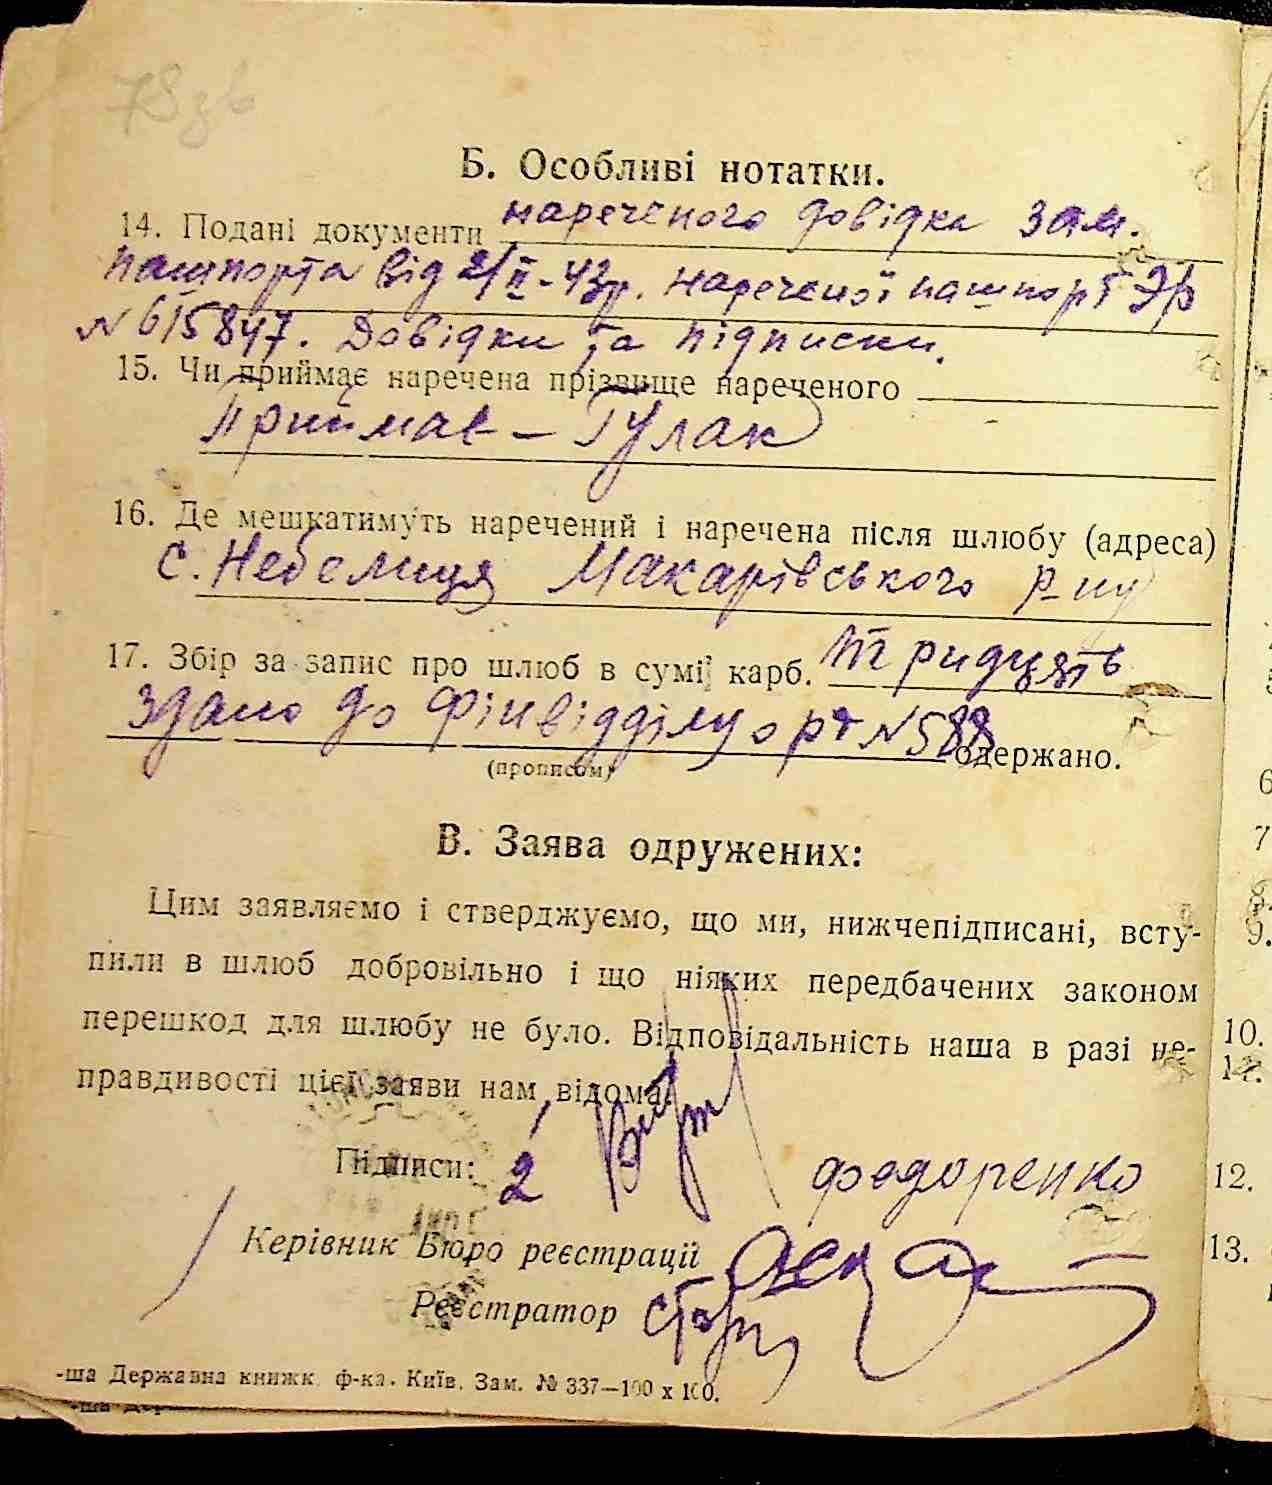 78зв
Б. Особливі нотатки.
14. Подані документи нареченого довідка зам.
пашпорта від 2/II-43р. нареченої пашпорт ЭР
№ 615847. Довідки та підписки.
15. Чи приймає наречена прізвище нареченого
Приймає – Гулак
16. Де мешкатимуть наречений і наречена після шлюбу (адреса)
с. Небелиця Макарівського р-ну
17. Збір за запис про шлюб в сумі карб. тридцять
здано до фінвідділу о рд № 588 одержано.
(прописом)
В. Заява одружених:
Цим заявляємо і стверджуємо, що ми, нижчепідписані, всту-
пили в шлюб добровільно і що ніяких передбачених законом
перешкод для шлюбу не було. Відповідальність наша в разі не-
правдивості цієї заяви нам відома.
Підписи: 2 Федоренко
Керівник Бюро реєстрації
Реєстратор
-ша Державна книжк. ф-ка. Київ. Зам. № 337—100 х 100.
6
7
9.
10.
12.
13.